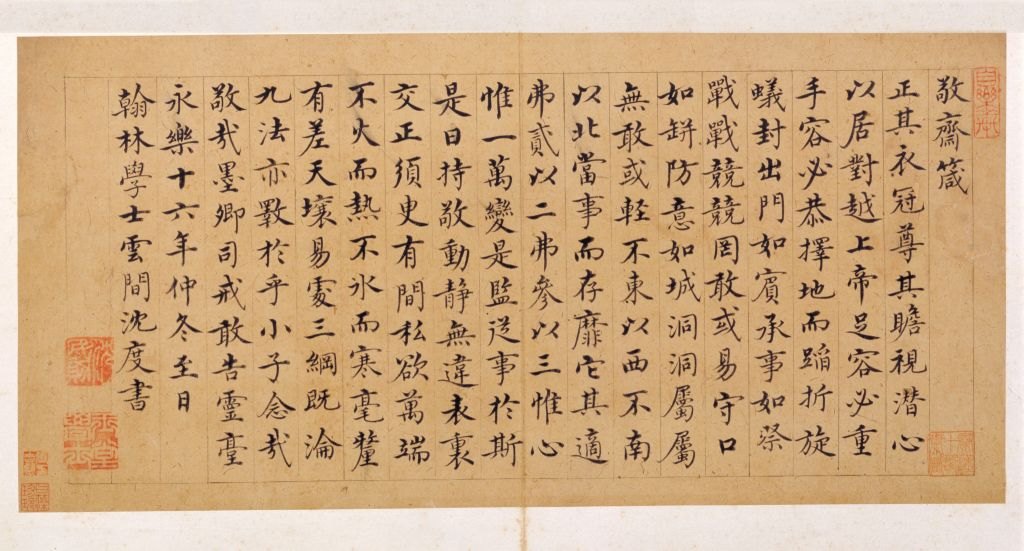 敬齋箴
正其衣冠尊其瞻視潛心
以居對越上帝足容必重
手容必恭擇地而蹈折旋
蟻封出門如賓承事如祭
戰戰競競罔敢或易守口
如缾防意如城洞洞屬屬
無敢或輕不東以西不南
以北當事而存靡它其適
弗貳以二弗參以三惟心
惟一萬變是監從事於斯
是曰持敬動靜無違表裏
交正須臾有間私欲萬端
不火而熱不冰而寒毫釐
有差天壤易處三綱既淪
九法亦斁於乎小子念哉
敬哉墨卿司戒敢告靈臺
永樂十六年仲冬至日
翰林學士雲間沈度書